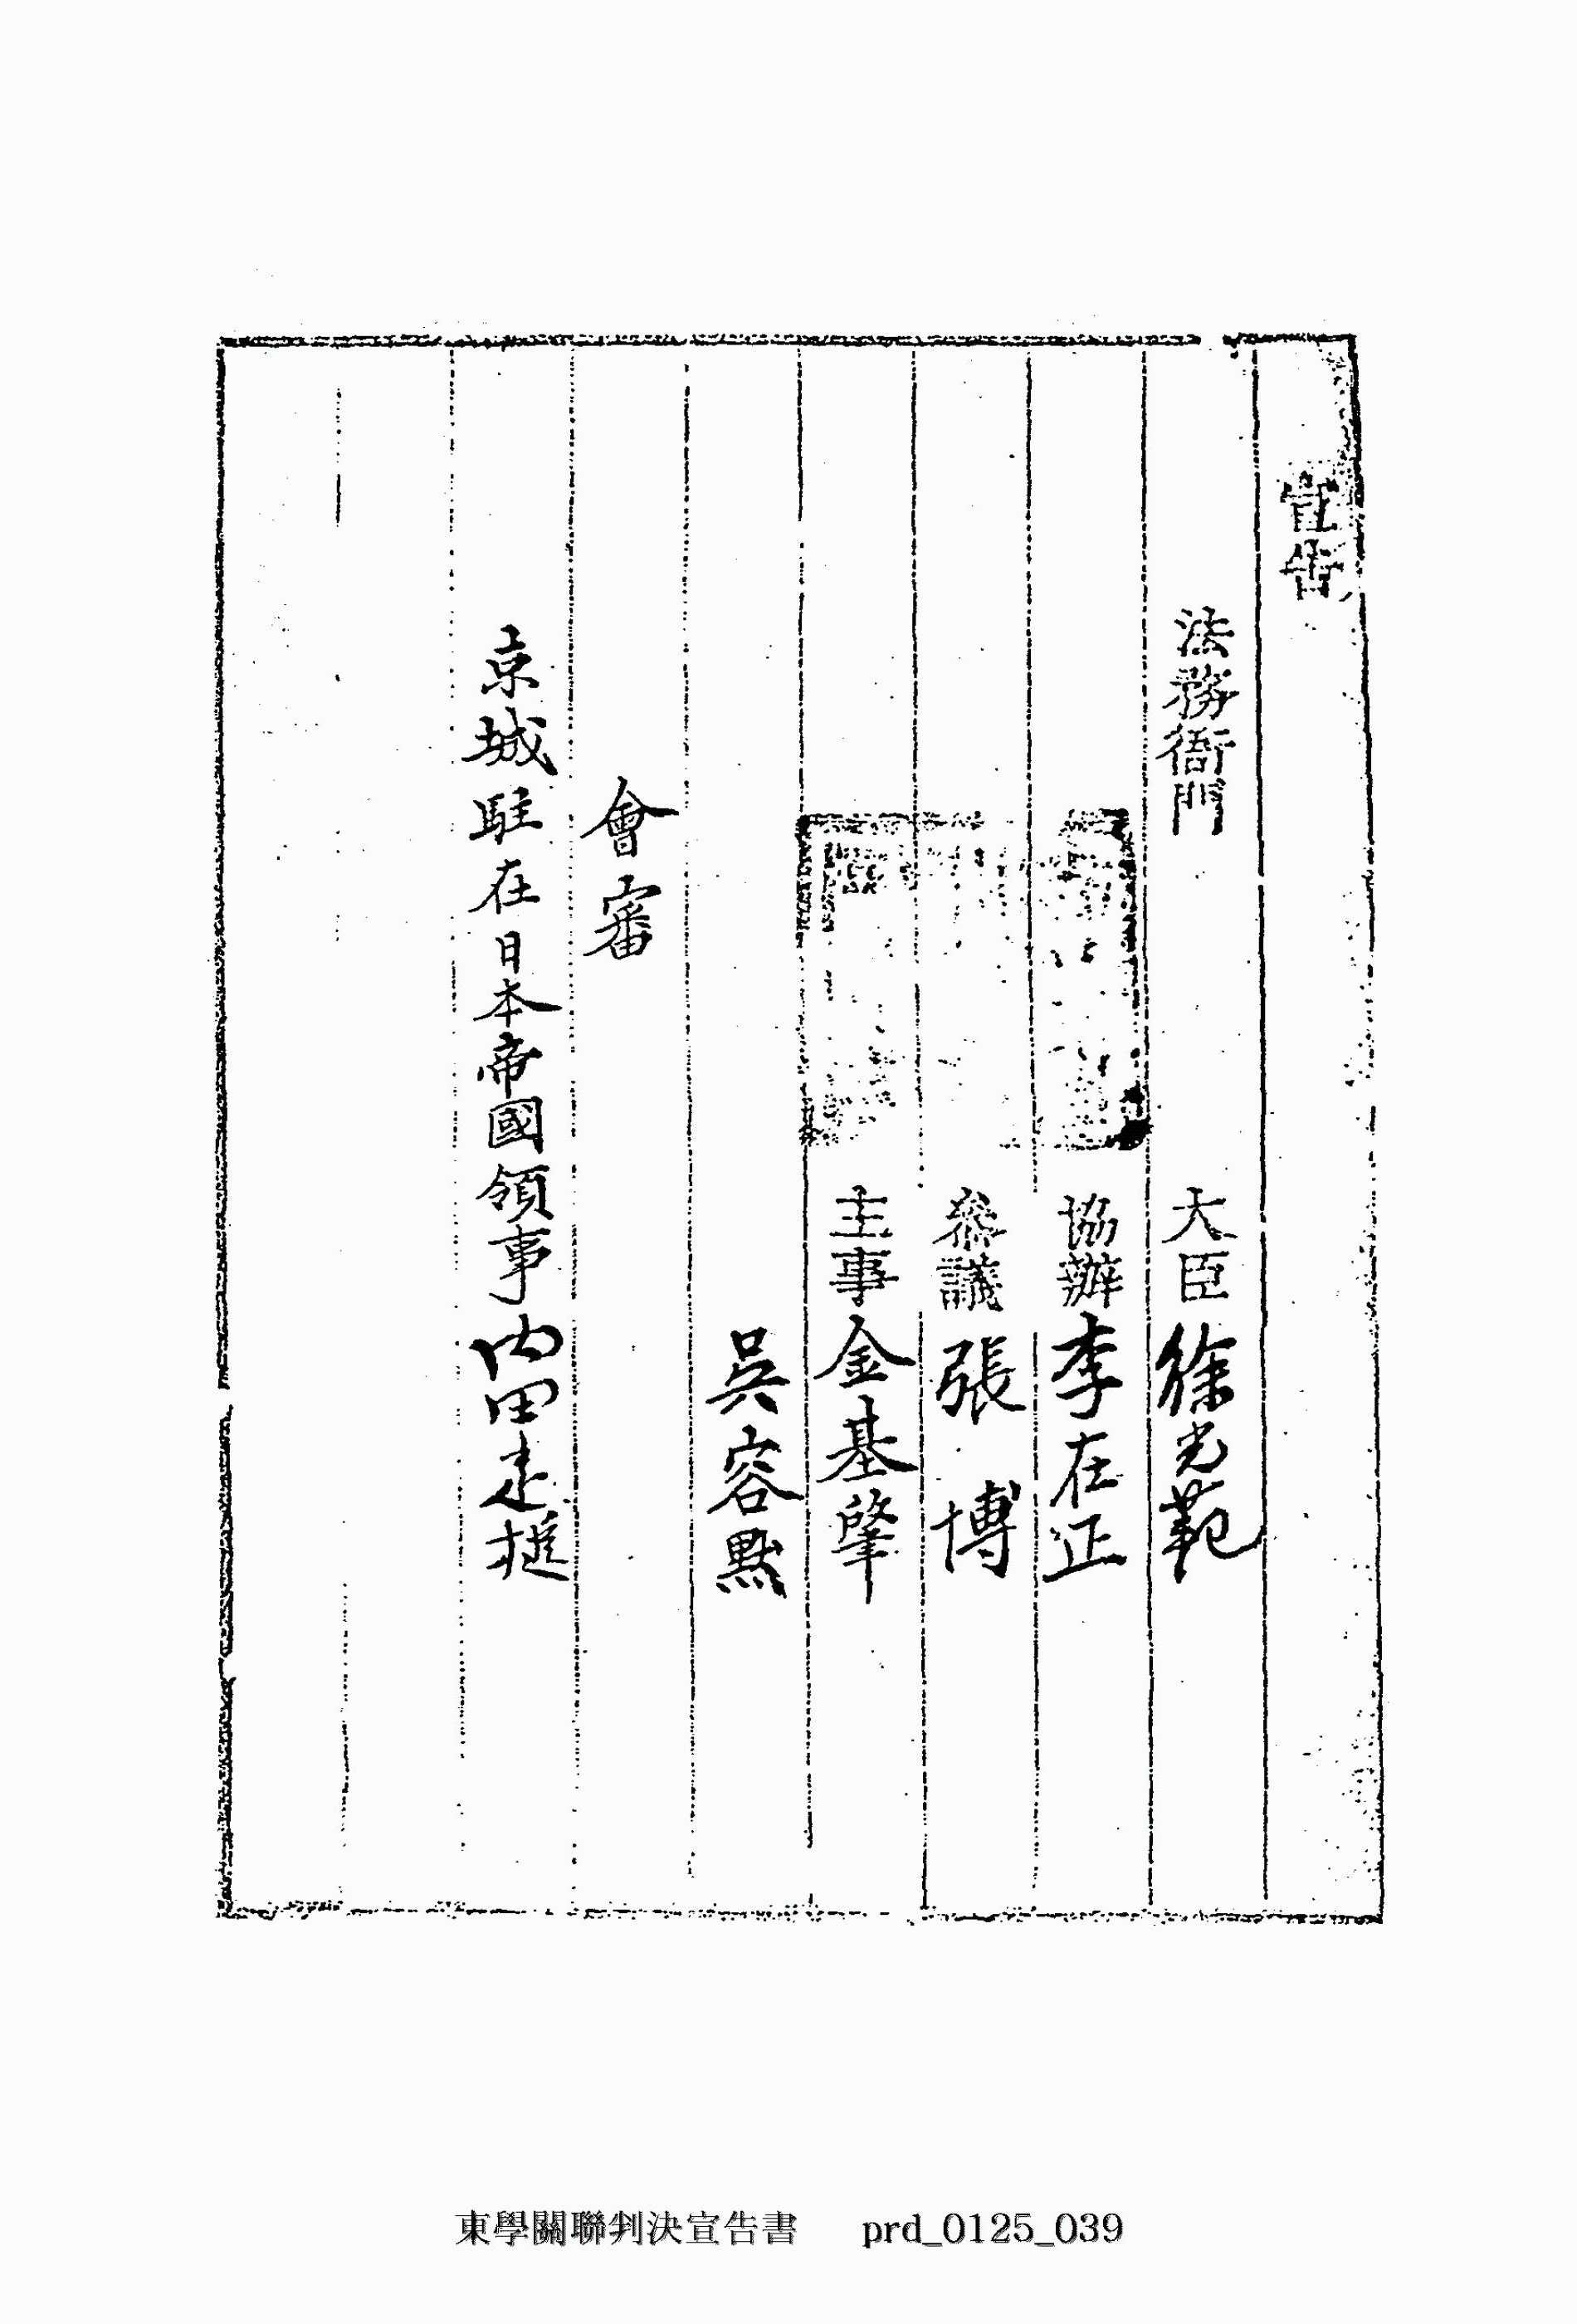 宣告
法務衙門
大臣 徐光範
協辦 李在正
參議 張 博
主事 金基肇
吳容默
會審
京城駐在日本帝國領事 內田定槌
東學關聯判決宣告書 prd_0125_039